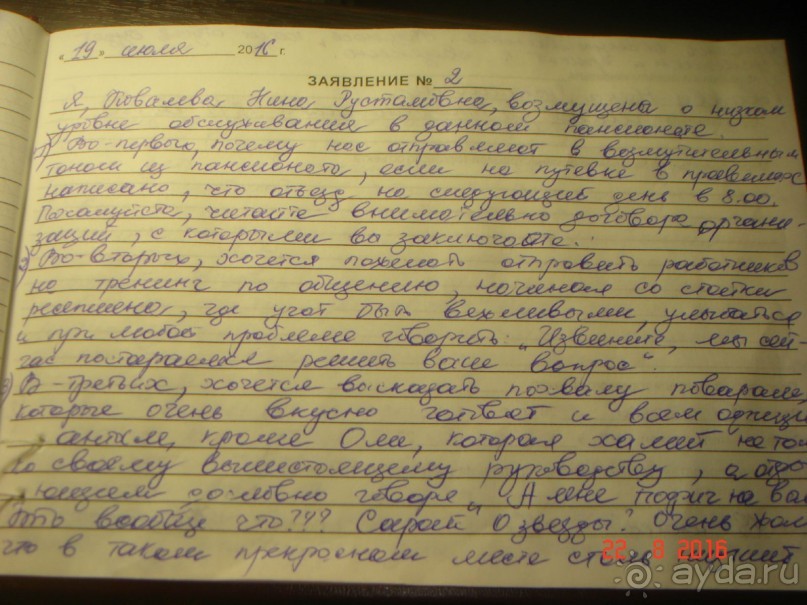 "19" июля 2016 г.
ЗАЯВЛЕНИЕ № 2
Я, Ковалева Нина Рустамовна, возмущены о низком
уровне обслуживания в данном пансионате.
1) Во-первых, почему нас отправляют в возмутительным
тоном из пансионата, если на путевке
написано, что отъезд на следующий день в 8.00.
Пожалуйста, читайте внимательно договора органи-
заций, с которыми вы заключаете.
2) Во-вторых, хочется пожелать отправить работников
на тренинг по общению, начиная со стойки
ресепшена, где учат быть вежливыми, улыбаться
и при любой проблеме говорить: "Извините, мы сей-
час постараемся решить ваш вопрос".
3) В-третьих, хочется высказать похвалу поварам,
которые очень вкусно готовят и всем официантам, кроме Оли, которая хамит не тол
ко своему вышестоящему руководству, а
дословно говоря "А мне насрать на вас
Это вообще что??? Сарай 0 звезды? Очень жал
что в таком прекрасном месте столь
22 8 2016
ayda.ru